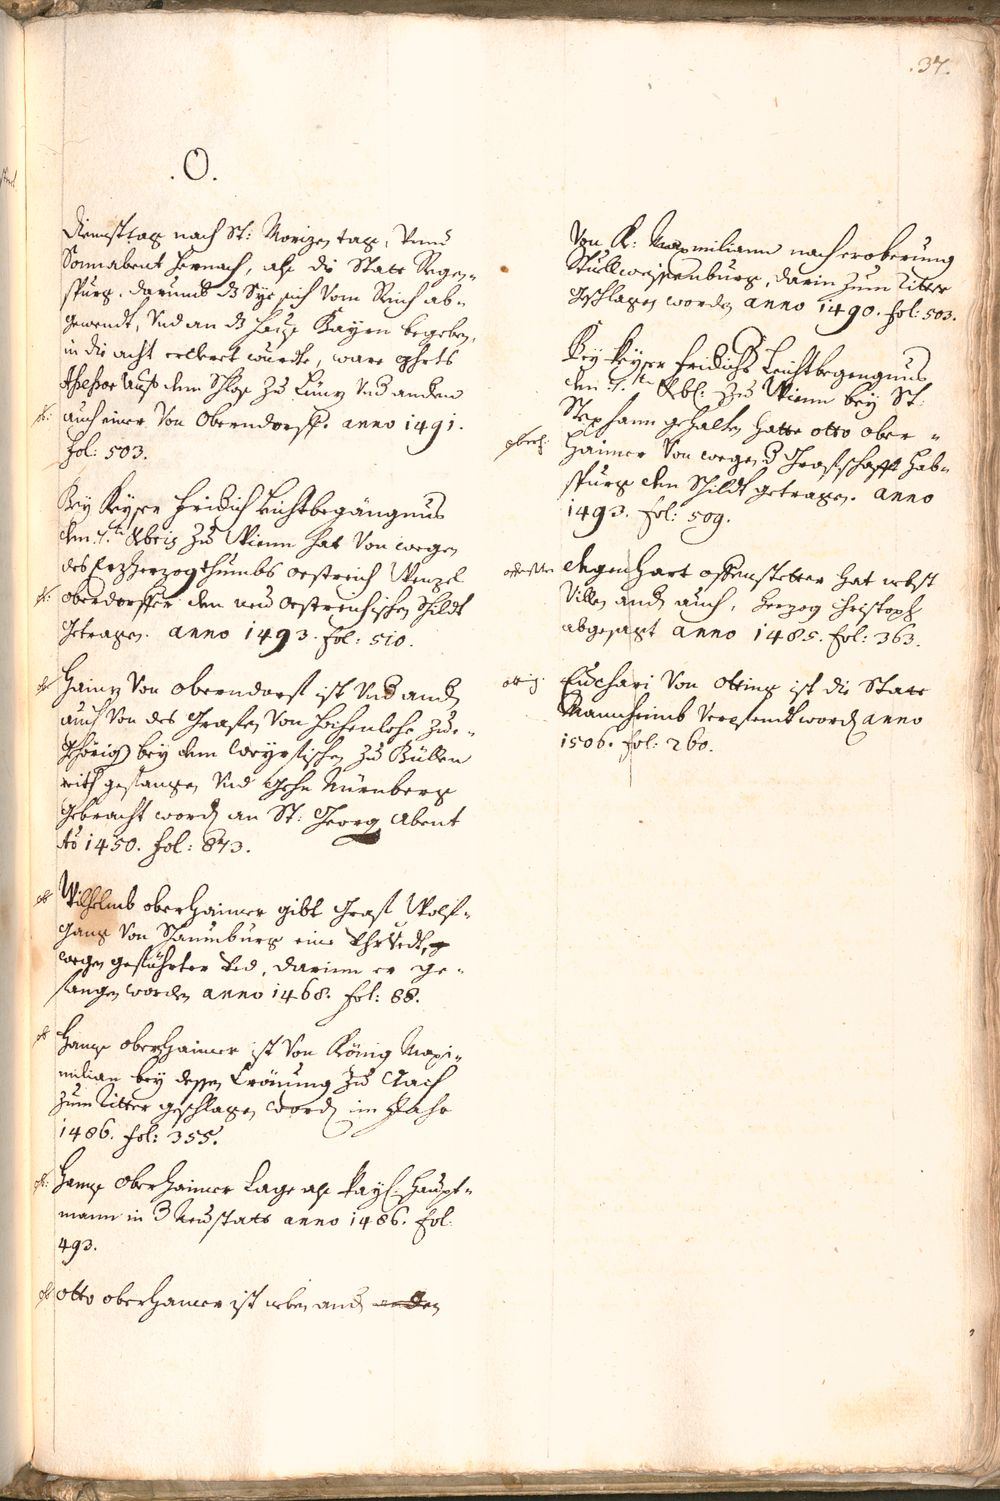 .37.
.O.
Dienstag nach St: Morizen tag, Vnnd
Sonnabent hernach, als die Statt Regen-
spurg, darumb dz Sye sich Vom Reich ab-
gewendt, Vnd an dz hauß Bayrn begeben,
in die acht erclert wurdt, ware
auß dem Schloß zu Lintz Vnd andern
auch einer Von Oberndorff. anno 1491.
fol: 503.
Bey Keyser Fridrich Leichtbegängnus
den 7.ten zu Wienn hat Von wegen
des Erzherzogthumbs Oestreich Wenzel
oberdorffer den neu Oestreichischen Schildt
getragen. anno 1493. fol: 510.
Hainz Von oberndorf ist Vnd andern
auch Von des Grafen Von Hochenlohe zue-
gehörig bey dem Weyrfischen zu
gefangen Vnd gehn Nürnberg
gebracht worden an St: Georg Abent
Ao 1450. fol: 873.
Wilhelmb oberhaimer gibt Graf Wolf-
gang Von Schaunburg eine Vhrvedt,
wegen geführter Red, darinn er ge-
fangen worden anno 1468. fol: 88.
Hanß oberhaimer ist Von König Maxi-
milian bey dessen Crönung zu Aach
zum Ritter geschlagen worden im Jahr
1486. fol: 355.
Hanß Oberhaimer lage alß Kayl: Haupt-
mann in d Neustatt anno 1486. fol:
493.
Otto oberhamer ist neben andern
Von K: Maxmiliann nach eroberung
Stullweissenburg, darin zum Ritter
geschlagen worden anno 1490. fol: 503.
Bey Keyser Fridrichs Leichtbegengnus
den 7.ten zu Wienn bey St:
Stephann gehalten hatte otto ober-
haimer Von wegen d Grafschafft Hab-
spurg den Schildt getragen. anno
1493. fol: 509.
degenhart offenstetter hat nebst
Villen andern auch, Herzog Christoph
abgesagt anno 1485. fol: 363.
Euchari Von Oting ist die Statt
Mannheimb Verpfendt worden anno
1506. fol: 260.